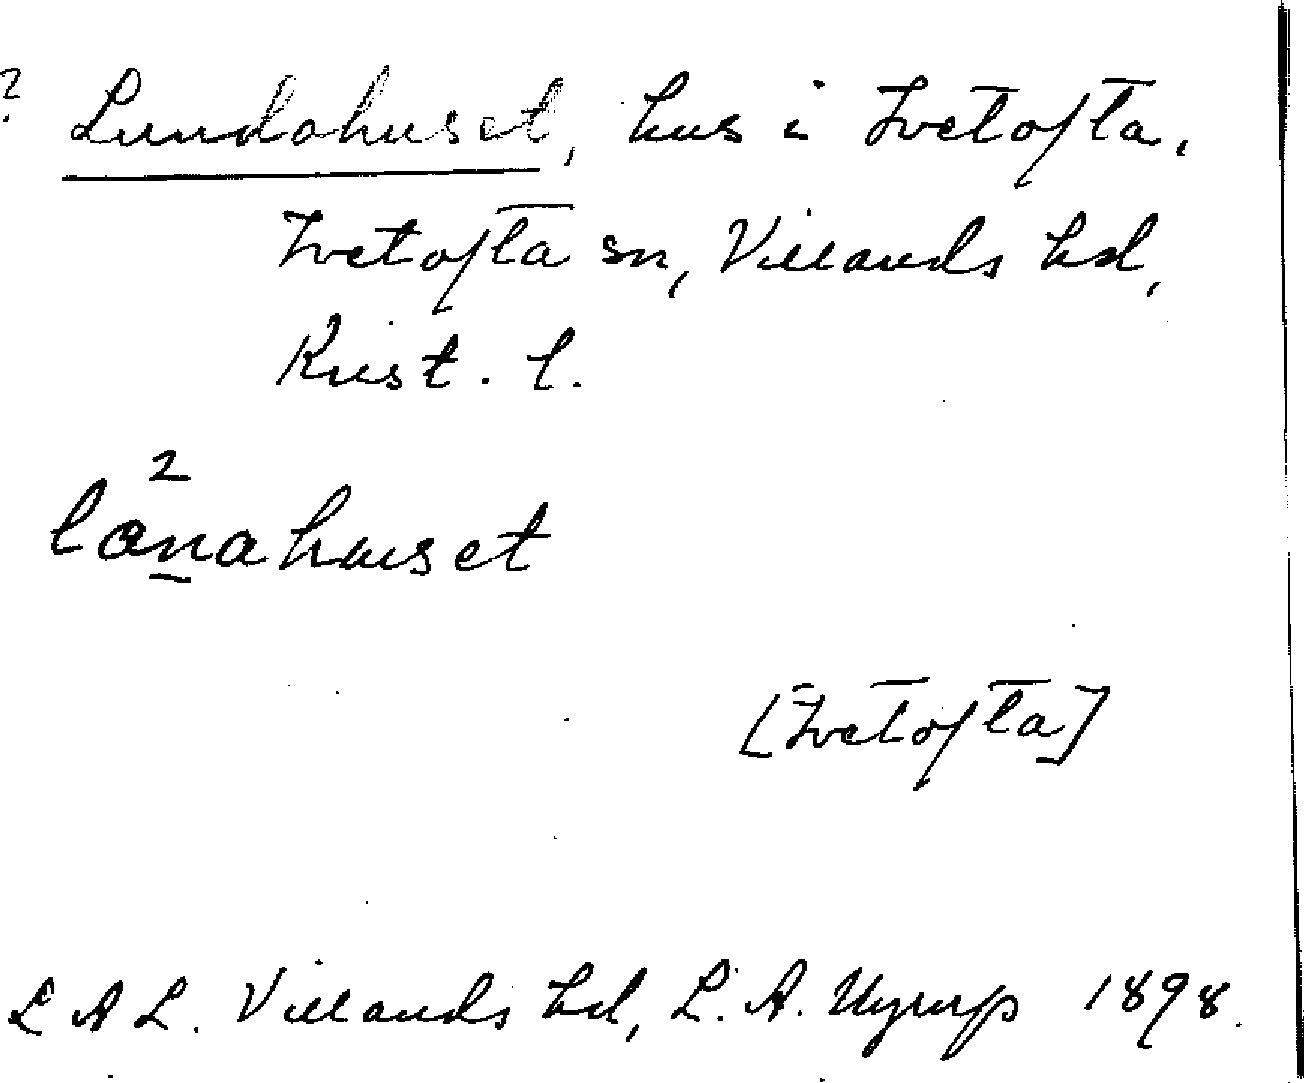 ? Lundahuset, hus i Ivetofta,
Ivetofta sn, Villands hd,
Krist. l.
2
lånahuset
[Ivetofta]
L A L. Villands hd, L. A. 1898.